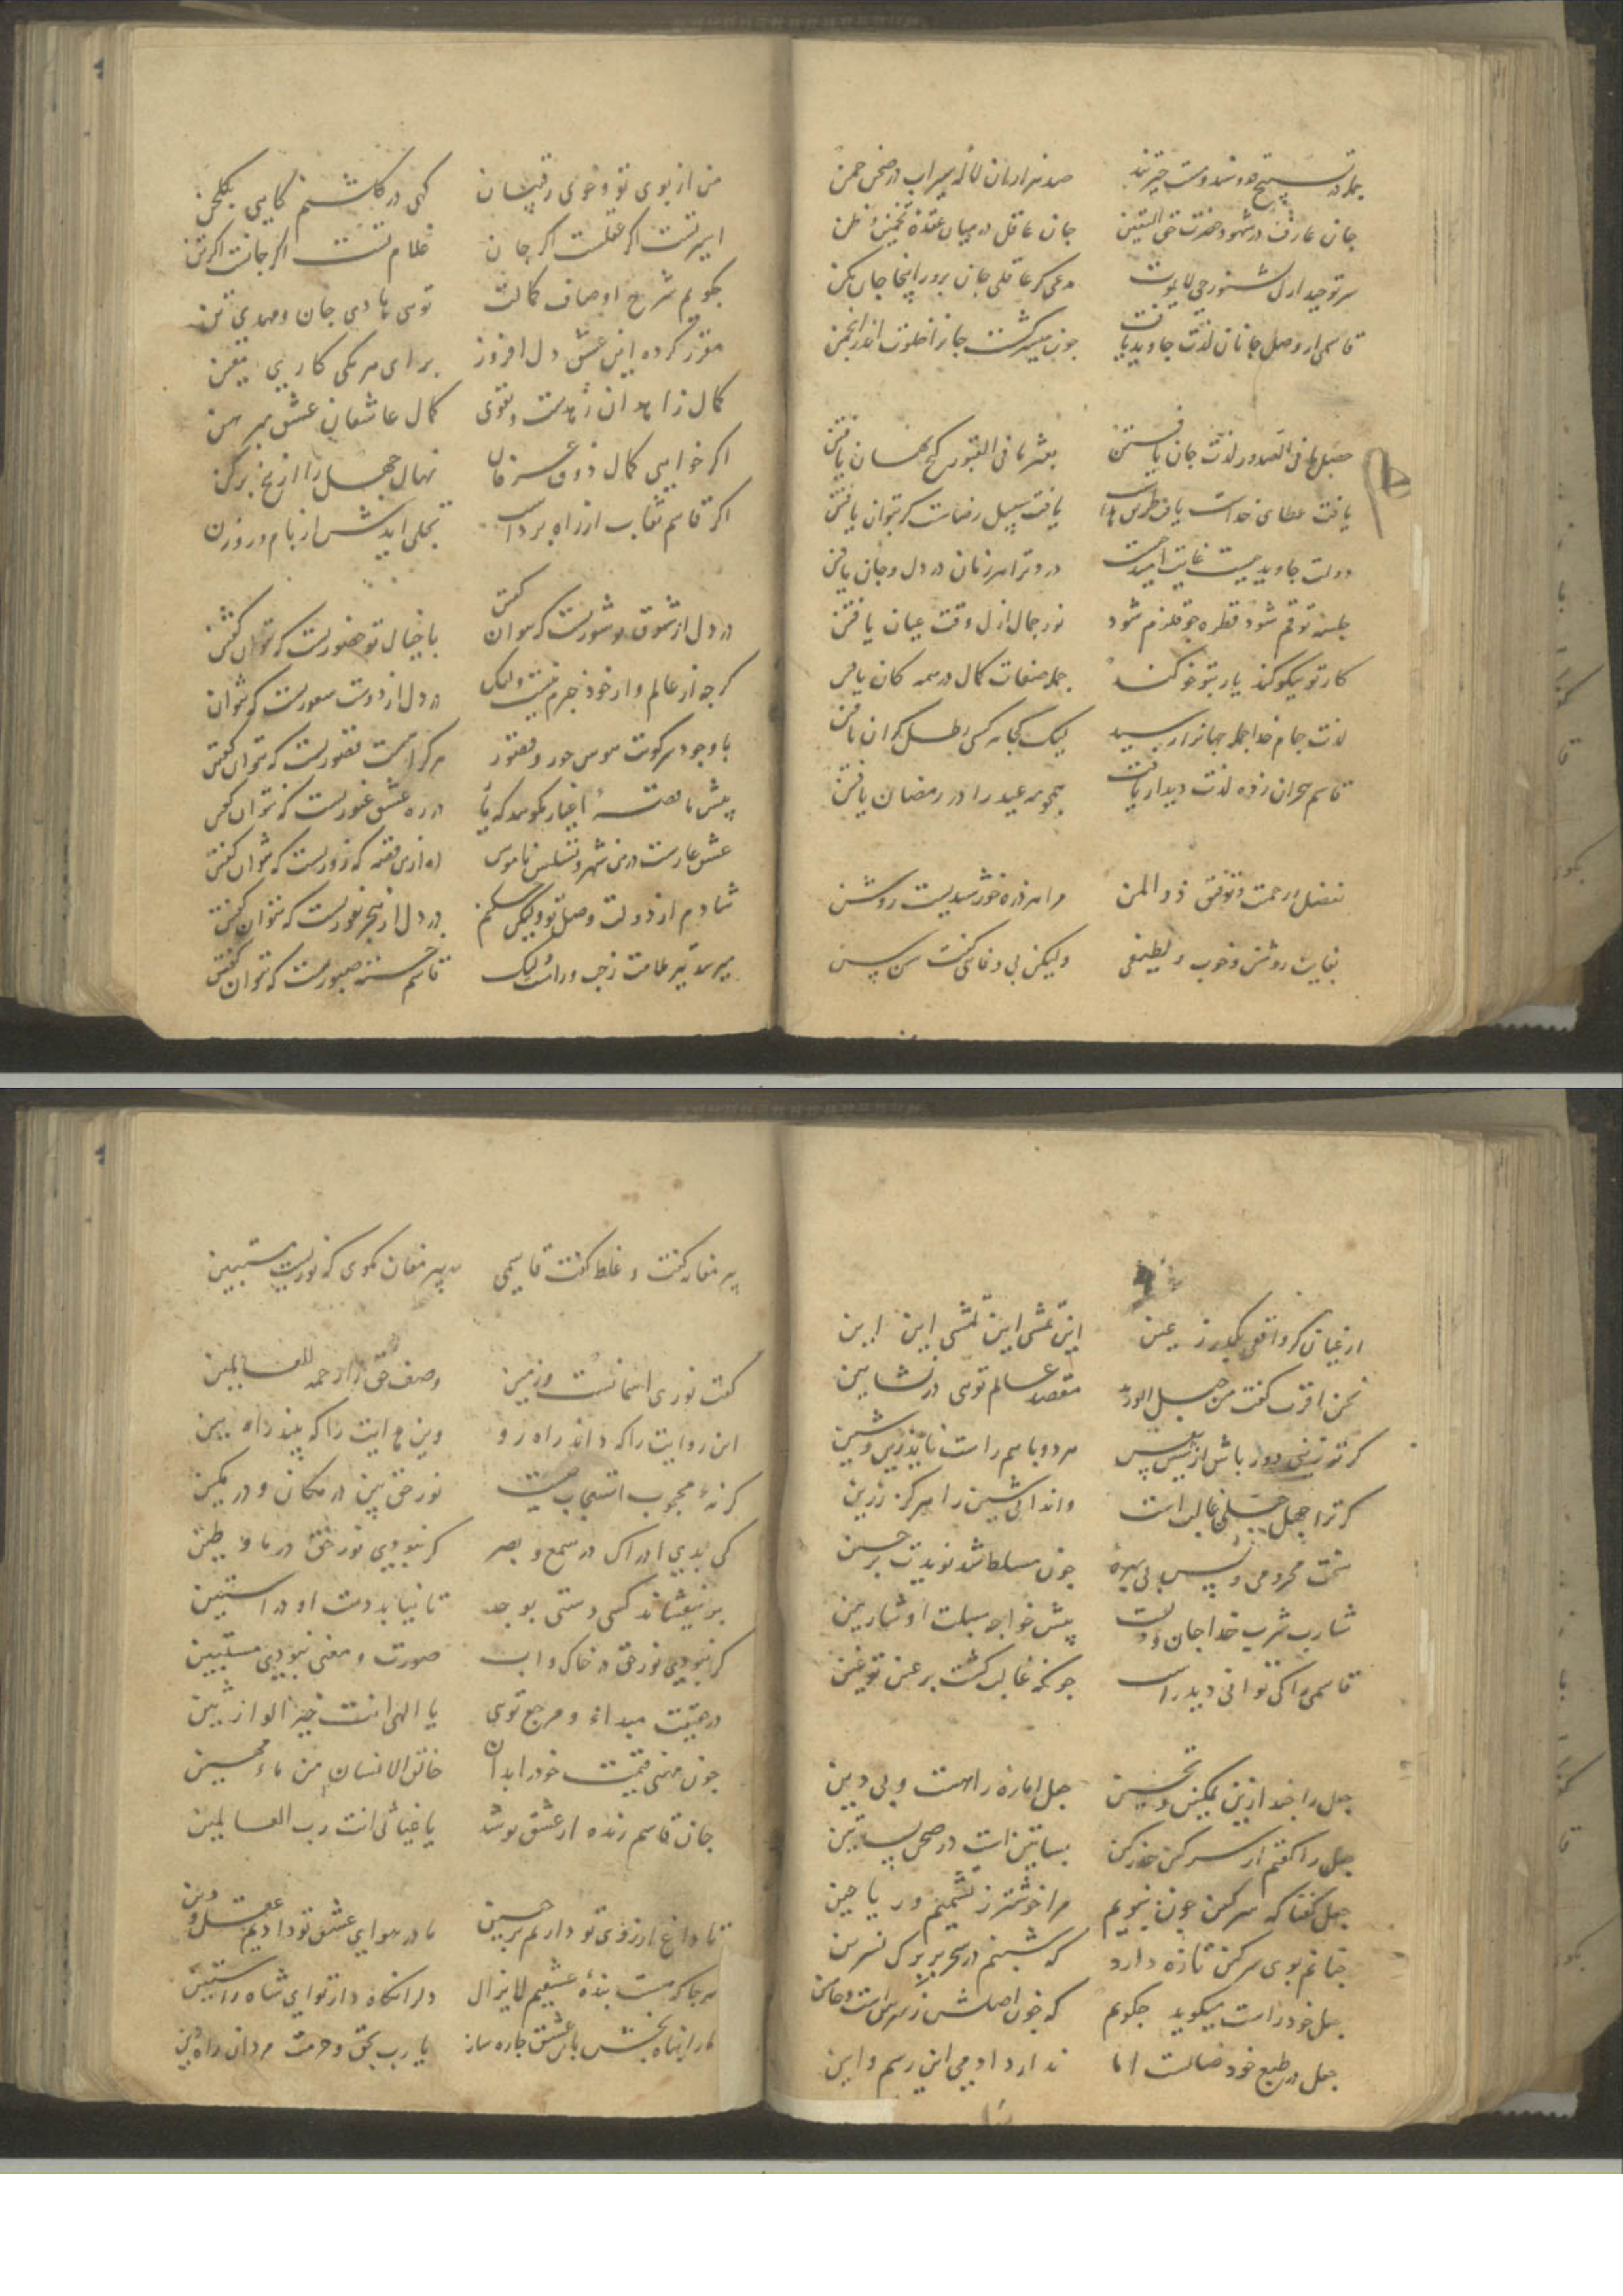 جمله در تسبیح قدوسند و مست حیرتند صد هزاران لاله سیراب در صحن چمن
جان عارف در شهود حضرت حق الیقین جان عاقل در میان عقده تخمین و ظن
سر توحید از شنو حی لایموت مدعی کر عاقلی جان پرور اینجا جان مکن
قاسمی از وصل جانان لذت جاوید یافت چون میسر کشت جانرا خلوت اندر انجمن
حصل ما فی الصدور لذت جان یافتن بعثر ما فی القبور کنج نهان یافتن
یافت عطای خداست یافت سبیل رضاست کر بتوان یافتن
دولت جاوید چیست غایت امید چیست درد ترا هر زمان در دل و جان یافتن
جلسه تو قم شود قطره چو قلزم شود نور جمال ازل وقت عیان یافتن
کار تو نیکو کند یار بتو خو کند جمله صفات کمال در همه کان یافتن
لذت جام خدا جمله جهانرا رسید لیک کجا هر کسی رطل کران یافتن
قاسم هجران زده لذت دیدار یافت همچو مه عید را در رمضان یافتن
بفضل و رحمت و توفیق ذو المنن مرا هر ذره خورشیدیست روشن
بغایت روشن و خوب و لطیفی ولیکن بی وفایی کفت من پس
من از بوی تو و خوی رقیبان کهی در کلشنم کاهی بکلخن
اسیر تست اکر عقلست اکر جان غلام تست اکر جانست اکر تن
چکویم شرح اوصاف کمالت تویی هادی جان و مهدی تن
مقرر کرده این عشق دل افروز برای هر یکی کاری معین
کمال زاهدان زهدست و تقوی کمال عاشقان عشق مبرهن
اکر خواهی کمال ذوق عرفان نهال جهل را از بیخ برکن
اکر قاسم نقاب از راه برداشت تجلی آیدش از بام و روزن
در دل از شوق تو شوریست که نتوان کفتن با خیال تو حضوریست که نتوان کفتن
کرچه از عالم و از خود خبرم نیست ولیک در دل از دوست سروریست که نتوان
با وجود سر کویت هوس حور و قصور هر کرا هست قصوریست که نتوان کفتن
پیش ما قصه اغیار مکویید که ما در ره عشق غیوریست که نتوان کفتن
عشق عارست درین شهر و ناموس آه ازین قصه که زوریست که نتوان کفتن
شادم از دولت وصل تو ولیکن در دل از هجر نفوریست که نتوان کفتن
میرسد تیر ملامت ز چپ و راست ولیک قاسم خسته صبوریست که نتوان کفتن
از عیان کر واقفی بکذر ز عین این تمشی این تمشی این این
نحن اقرب کفت من حبل الورید مقصد عالم تویی در نشاتین
کر تو زینی دور باش از پیس هر دو با هم راست ناید زین و شین
کر ترا جهل جبلی غالب است وا ندانی شین را هرکز ز زین
سخت محرومی و پس بی بهره چون مسلط شد یزیدت بر حسین
شارب شرب خدا جان و دلست پیش خواجه سبلت او شاربین
قاسمی را کی توانی دید راست چونکه غالب کشت بر عین تو غین
جعل را خند ازین تمکین و تحسین جعل اماره راهست و بی دین
جعل را کفتم از سرکین حذر کن بساتین است در صحن بساتین
جعل کفتا که سرکین چون نبویم مرا خوشتر ز نسرین و ریاحین
چنانم بوی سرکین تازه دارد که شبنم در سحر بر برک نسرین
جعل خود راست میکوید چکویم که چون اصلش ز سرکین است
جعل در طبع خود ضالست اما ندارد ادمی این رسم و این
پیر مغانه کفت و غلط کفت قاسمی نه پیر مغان مکوی که نوریست مستبین
کفت نوری اسمانست و زمین وصف حق را رحمة للعالمین
این روایت را که داند راه رو وین حکایت را که بیند راه بین
کر نهٔ محجوب استعجاب چیست نور حق بین در مکان و در مکین
کی بدی ادراک در سمع و بصر کر نبودی نور حق در ما و طین
برنیفشاند کسی دستی بوجد تا نیاید دست او در آستین
کر نبودی نور حق در خاک و اب صورت و معنی نبودی مستبین
در حقیقت مبداء و مرجع تویی یا الهی انت خیر الوارثین
چون منی قیمت خود را بدان خالق الانسان من ماء مهین
جان قاسم زنده از عشق تو شد یا غیاثی انت رب العالمین
تا داغ ارزوی تو داریم بر جبین ما در هوای عشق تو دادیم عقل و دین
هر جا که هست بنده عشقیم لایزال دلرا نکاه دار تو ای شاه راستین
ما را پناه بخش بآن عشق چاره ساز یا رب بحق و حرمت مردان راه بین